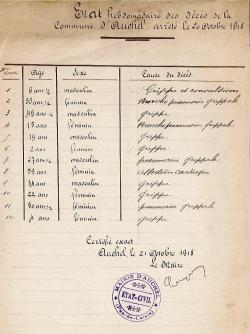 Etat hebdomadaire des décès de la
Commune d'Auchel arrêté le 20 Octobre 1918
Age Sexe Cause du décès
1 6 ans ½ masculin Grippe et convulsions
2 féminin Broncho pneumonie grippale
3 masculin Grippe
4 13 ans féminin Broncho pneumonie grippale
5 19 ans masculin Grippe
6 2 ans féminin Grippe
7 masculin pneumonie grippale
8 féminin affection cardiaque
9 masculin Grippe
10 22 ans féminin Grippe
11 féminin pneumonie grippale
12 ans féminin Grippe
Certifié exact
Auchel, le 21 Octobre 1918
Le Maire
MAIRIE D'AUCHEL
ETAT-CIVIL
(Pas-de-Calais)